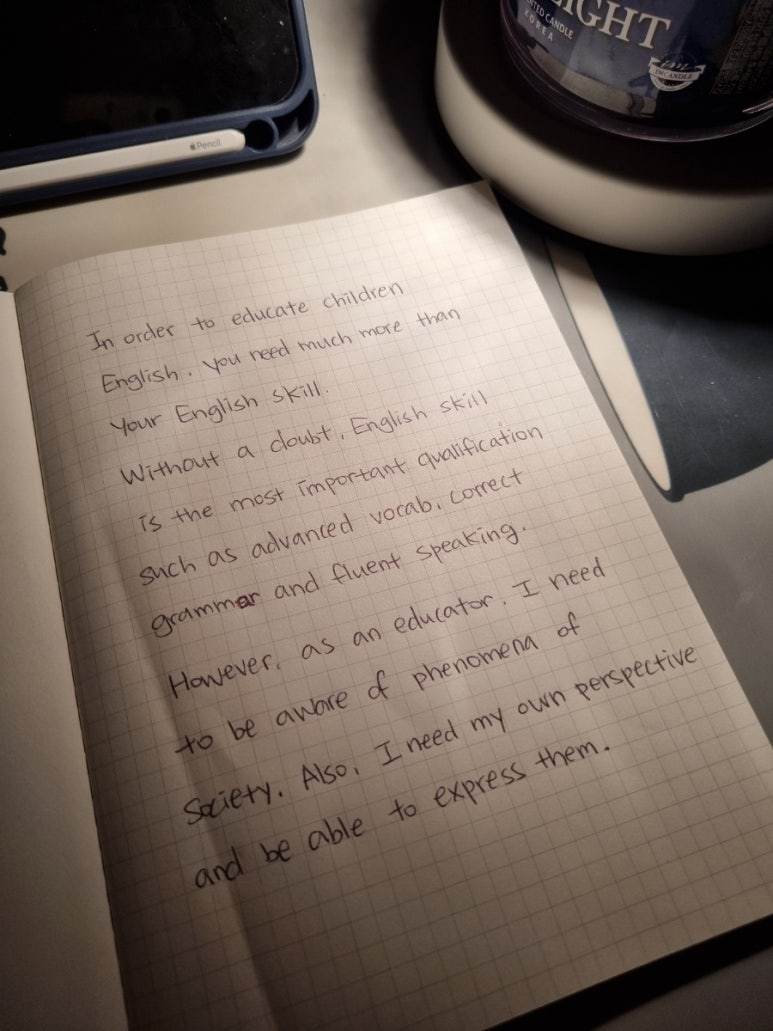 LIGHT
CANDLE
KOREA
Pencil
In order to educate children
English. you need much more than
your English skill.
Without a doubt, English skill
is the most important qualification
such as advanced vocab, correct
grammar and fluent speaking.
However, as an educator, I need
to be aware of phenomena of
society. Also, I need my own perspective
and be able to express them.